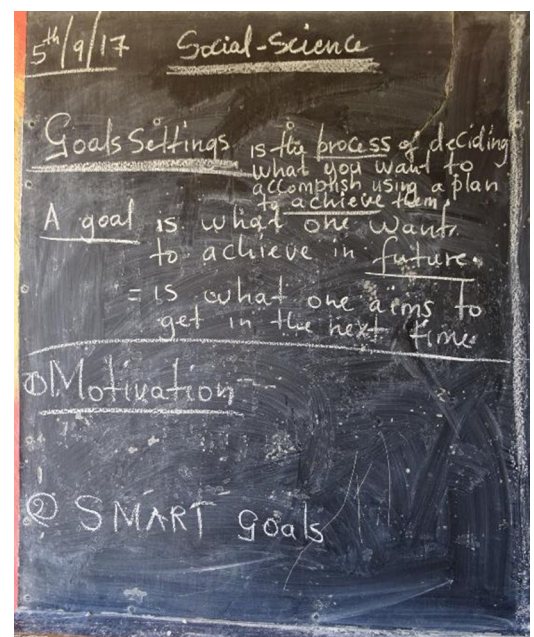 5th/9/17 Social-Science
Goals Settings is the process of deciding
what you want to
accomplish using a plan
to achieve them.
A goal is what one wants
to achieve in future.
= is what one aims to
get in the next time.
① Motivation ---
② SMART goals